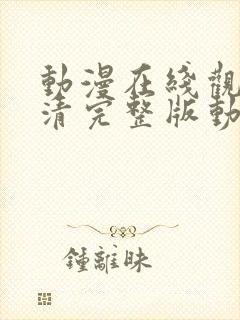 動漫在綫觀
清完整版動
鍾離昧